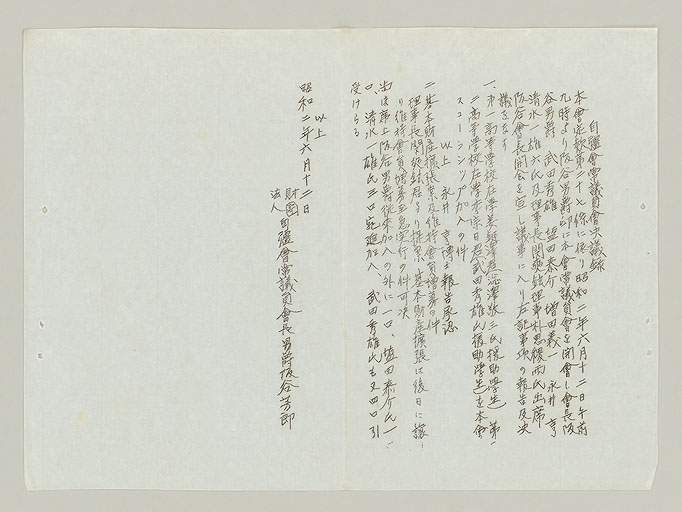 自彊會常議員會決議録
本會定款第二十七條に依り昭和二年六月十二日午前
九時より阪谷男爵邸に本會常議員會を開會し會長阪
谷男爵 武田秀雄 塩田泰介 増田義一 永井 亨
清水一雄六氏及理事長関奭鉉理事朴思稷両氏出席
阪谷會長開会を宣し議事に入り左記事項の報告及決
議をなす
一、第一高等学校在学
援助学生 第
二高等学校在学 武田秀雄氏援助学生を本會
スコーラシップ加入の件
以上 永井 亨博士報告承認
二、基本財産擴張案及維持會員増募の件
理事長 提案 基本財産擴張は後日に譲
り維持會員増募 実行の件可決
阪谷男爵従来加入の外に一口、塩田泰介氏一
口、清水一雄氏三口 加入、武田秀雄氏も又四口引
受けらる
以上
昭和二年六月十二日
財團
法人 自彊會常議員會長男爵阪谷芳郎